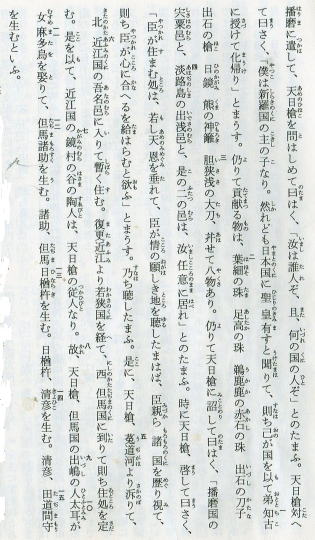 播磨に遣して、天日槍を問はしめて曰はく、「汝は誰人ぞ、且、何の国の人ぞ」とのたまふ。天日槍対へ
て曰さく、「僕は新羅国の主の子なり。然れども日本国に聖皇有すと聞りて、則ち己が国を以て弟知古
に授けて化帰り」とまうす。仍りて貢献る物は、葉細の珠 足高の珠 鵜鹿鹿の赤石の珠 出石の刀子
出石の槍 日鏡 熊の神籬 胆狭浅の大刀、幷せて八物あり。仍りて天日槍に詔して曰はく、「播磨国の
宍粟邑と、淡路島の出浅邑と、是の二の邑は、汝任意に居れ」とのたまふ。時に天日槍、啓して曰さく、
「臣が住まむ処は、若し天恩を垂れて、臣が情の願しき地を聴したまはば、臣親ら諸国を歴り視て、
則ち臣が心に合へるを給はらむと欲ふ」とまうす。乃ち聴したまふ。是に、天日槍、菟道河より泝りて、
北、近江国の吾名邑に入りて暫く住む。復更近江より若狭国を経て、西、但馬国に到りて則ち住処を定
む。是を以て、近江国の鏡村の谷の陶人は、天日槍の従人なり。故、天日槍、但馬国の出嶋の人太耳が
女麻多烏を娶りて、但馬諸助を生む。諸助、但馬日楢杵を生む。日楢杵、清彦を生む。清彦、田道間守
を生むといふ。